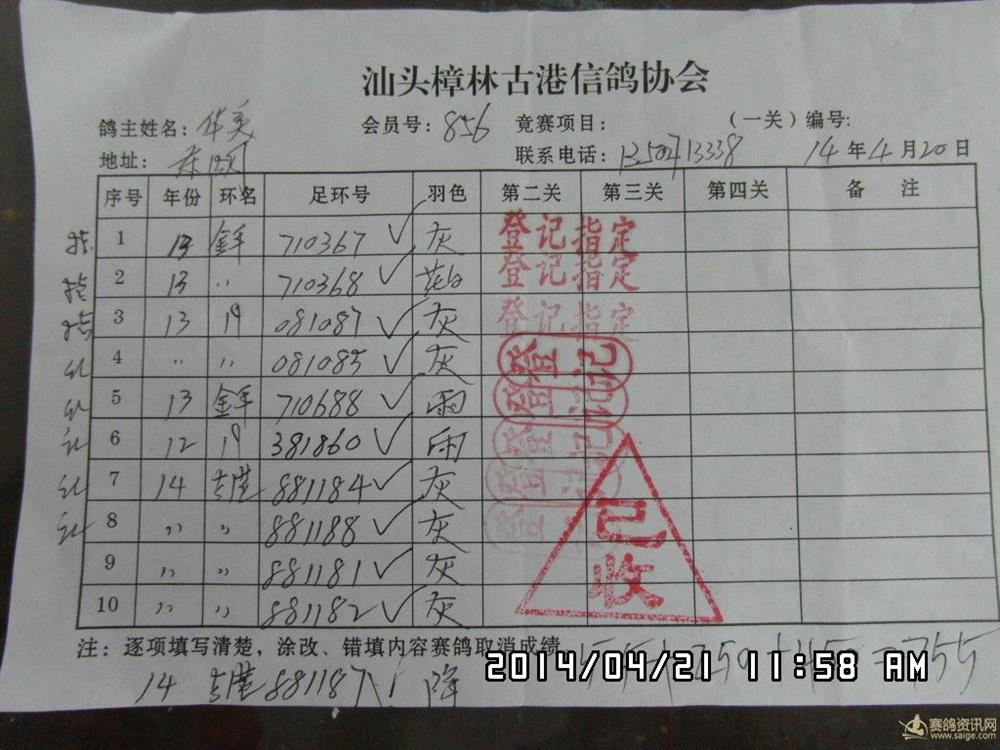 汕头樟林古港信鸽协会
鸽主姓名： 华美 会员号： 856 竞赛项目： （一关）编号:
地址： 联系电话： 13502713338 14 年 4 月 20 日
序号 年份 环名 足环号 羽色 第二关 第三关 第四关 备 注
指 1 13 710367 ✓ 灰 登记指定
指 2 13 〃 710368 ✓ 花 登记指定
指 3 13 19 081087 ✓ 灰 登记指定
记 4 〃 〃 081085 ✓ 灰 登记
记 5 13 710688 ✓ 雨 登记
记 6 12 19 381860 ✓ 雨 登记
记 7 14 古港 881184 ✓ 灰 登记
记 8 〃 〃 881188 ✓ 灰 登记
9 〃 〃 881181 ✓ 灰
10 〃 〃 881182 ✓ 灰
已收
注：逐项填写清楚，涂改、错填内容赛鸽取消成绩
14 古港 881187 降
2014/04/21 11:58 AM
赛鸽资讯网
www.saige.com